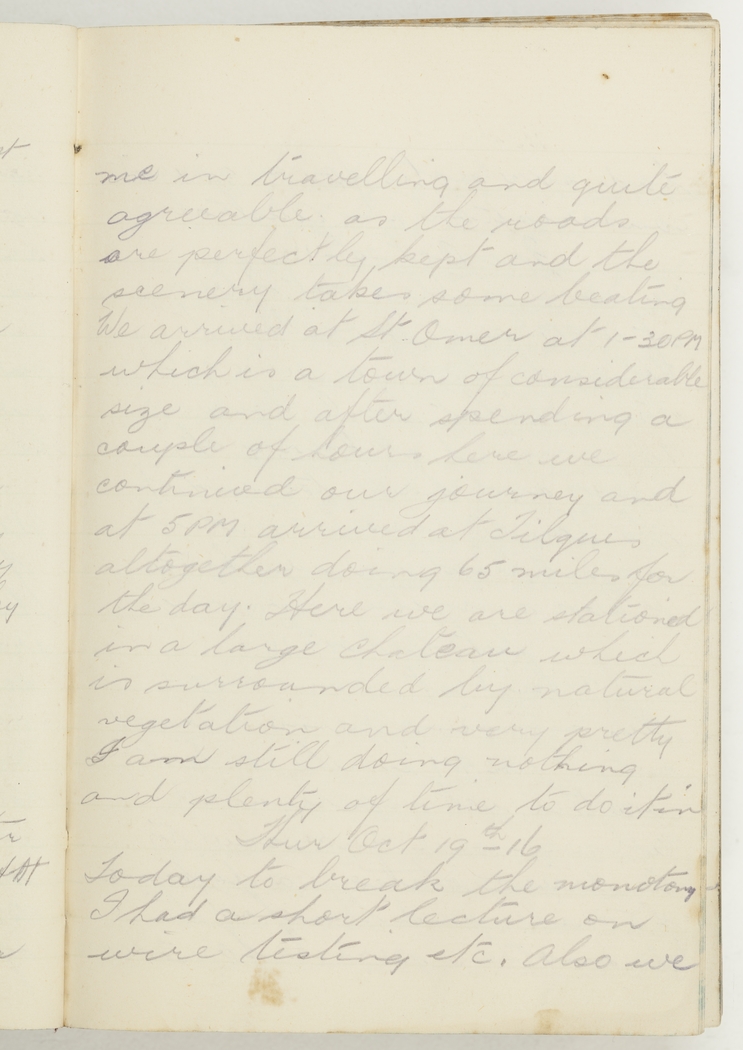 me in travelling and quite
agreeable as the roads
are perfectly kept and the
scenery takes some beating
We arrived at St. Omer at 1-30PM
which is a town of considerable
size and after spending a
couple of hours here we
continued our journey and
at 5PM arrived at Tilques
altogether doing 65 miles for
the day. Here we are stationed
in a large chateau which
is surrounded by natural
vegetation and very pretty
I am still doing nothing
and plenty of time to do it in
Thur Oct 19th 16
Today to break the monotony
I had a short lecture on
wire testing etc. Also we